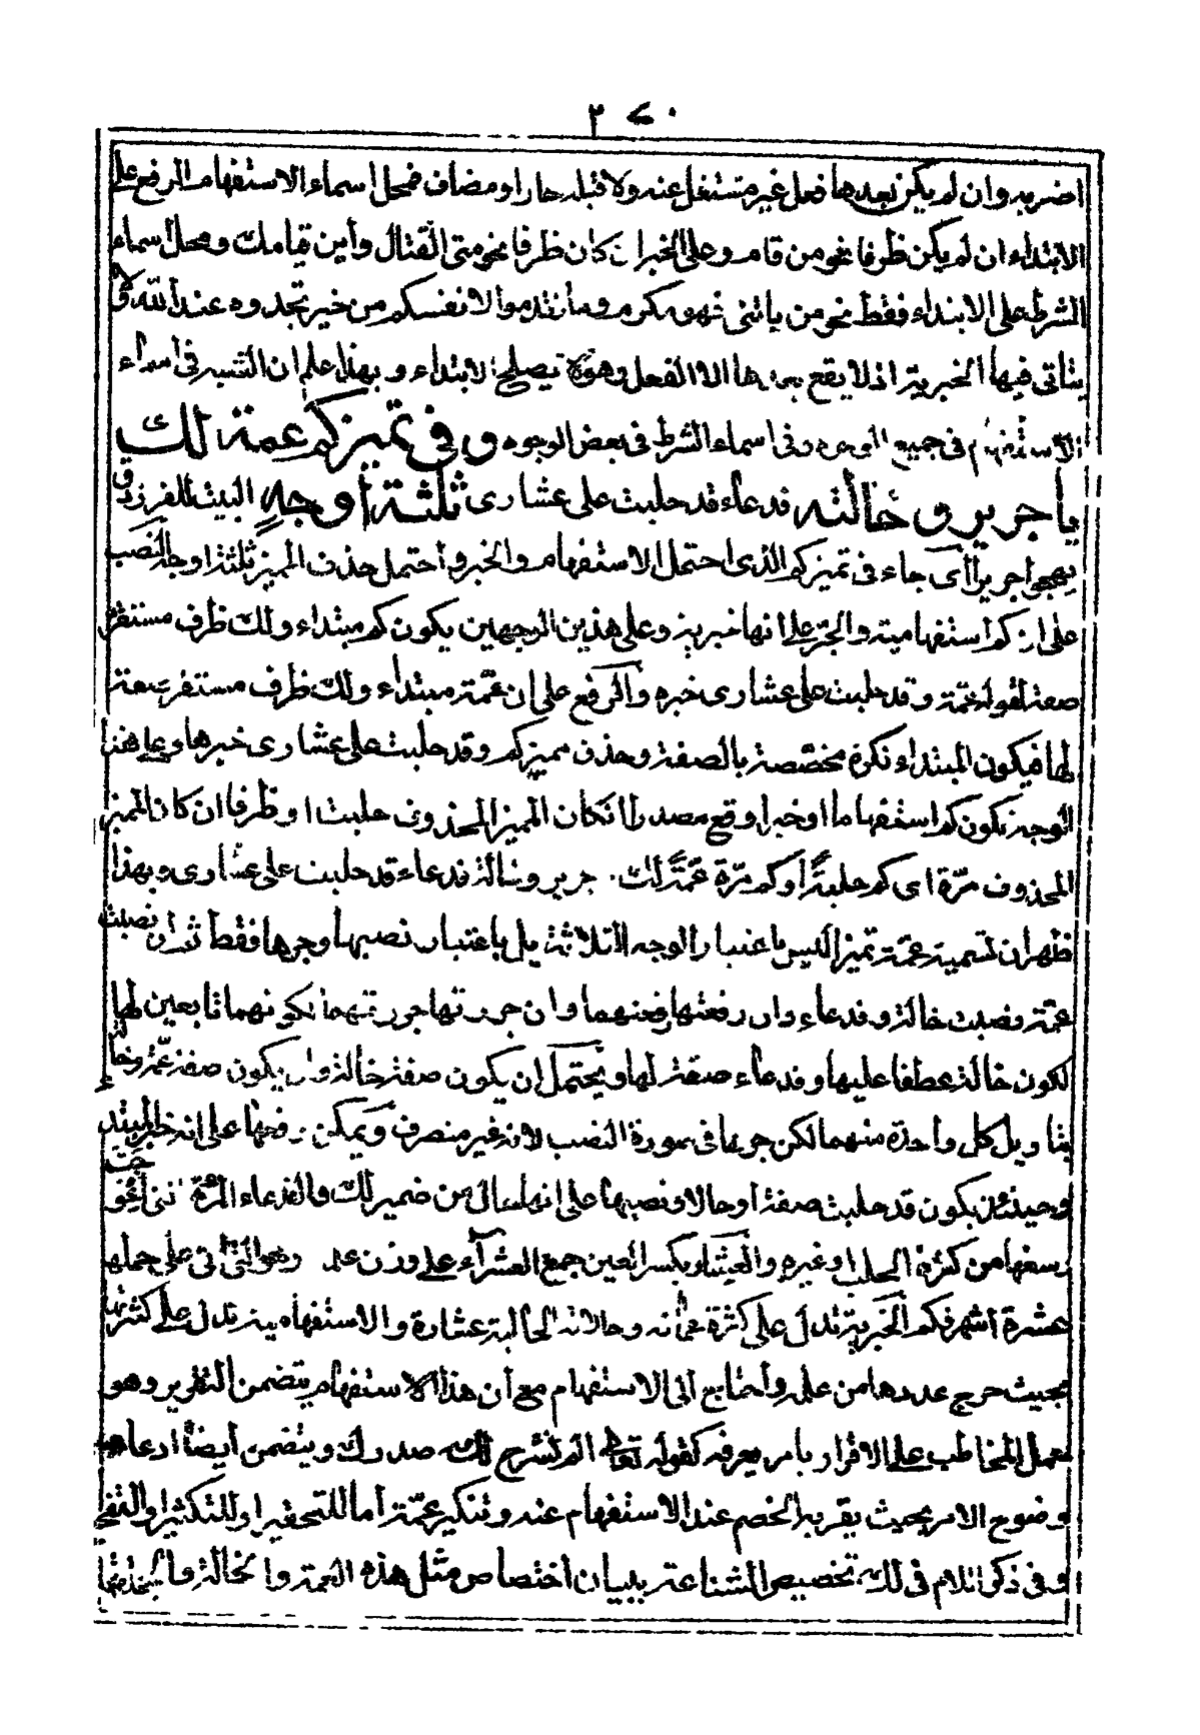 ٢٧٠
اضربه وان لم يكن بعدها فعل غير مشتغل عنه ولا قبله جار او مضاف فمحل اسماء الاستفهام الرفع على
الابتداء ان لم يكن ظرفا نحو من قام وعلى الخبر ان كان ظرفا نحو متى القتال وأين قيامك ومحل اسماء
الشرط على الابتداء فقط نحو من ياتنى فهو مكرم وما تقدموا لانفسكم من خير تجدوه عند الله ولا
يتاتى فيها الخبرية اذ لا يقع بعدها الا الفعل وهو لا يصلح الابتداء وبهذا علم ان التشبيه فى اسماء
الاستفهام فى جميع الوجوه وفى اسماء الشرط فى بعض الوجوه وفى تميز كم عمة لك
يا جرير وخالة فدعاء قد حلبت على عشارى ثلثة أوجه البيت للفرزدق
يهجو جريرا أى جاء فى تميز كم الذى احتمل الاستفهام والخبر واحتمل حذف المميز ثلثة اوجه النصب
على ان كم استفهامية والجر على انها خبرية وعلى هذين الوجهين يكون كم مبتداء ولك ظرف مستقر
صفة لقوله عمة وقد حلبت على عشارى خبره والرفع على ان عمة مبتداء ولك ظرف مستقر صفة
لها فيكون المبتداء نكرة مخصصة بالصفة وحذف مميز كم وقد حلبت على عشارى خبرها وعلى هذا
الوجه يكون كم استفهاما او خبرا وقع مصدرا انكان المميز المحذوف حلبت او ظرفا ان كان المميز
المحذوف مرة اى كم حلبة أو كم مرة عمة لك جرير وخالة فدعاء قد حلبت على عشارى وبهذا
ظهر ان تسمية عمة تميزا ليس باعتبار الوجه الثلاثة بل باعتبار نصبها وجرها فقط ثم ان نصبت
عمة نصبت خالة وفدعاء وان رفعتها رفعتهما وان جررتها جررتهما لكونهما تابعين لها
لكون خالة عطفا عليها وفدعاء صفة لها ويحتمل ان يكون صفة خالة وان يكون صفة عمة وخالة
بتاويل كل واحدة منهما لكن جرها فى صورة النصب لانه غير منصرف ويمكن رفعها على انه خبر المبتدء
وحينئذ يكون قد حلبت صفة أو حالا ونصبها على انها حال من ضمير لك والفدعاء المرءة
رسغها من كثرة الحلب او غيره والعشار بكسر العين جمع العشراء على وزن وهو التى اتى على حملها
عشرة أشهر فكم الخبرية تدل على كثرة عماته وخالاته الحالبة عشاره والاستفهامية تدل على كثرتها
بحيث خرج عددها من علمه وأحتاج الى الاستفهام مع أن هذا الاستفهام يتضمن التقرير وهو
حمل المخاطب على الاقرار بامر يعرفه كقوله تعالى الم نشرح لك صدرك ويتضمن أيضا ادعاء
وضوح الامر بحيث يقربه الخصم عند الاستفهام عنه وتنكير عمة أما للتحقير او للتكثير او التفخيم
وفى ذكر اللام فى لك تخصيص الشناعة ببيان أختصاص مثل هذه العمة والخالة